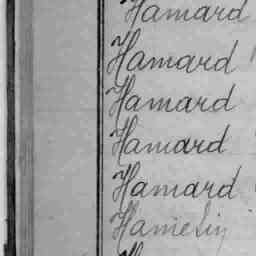 Hamard
Hamard
Hamard
Hamard
Hamard
Hamelin